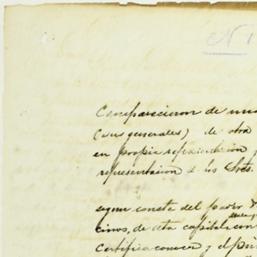 N 1
Comparecieron de una
(sus generales) de otra
en propia representacion y
representacion a los Srts.
segun consta del poder
cinos, de esta capital con
Certifico conocer y el